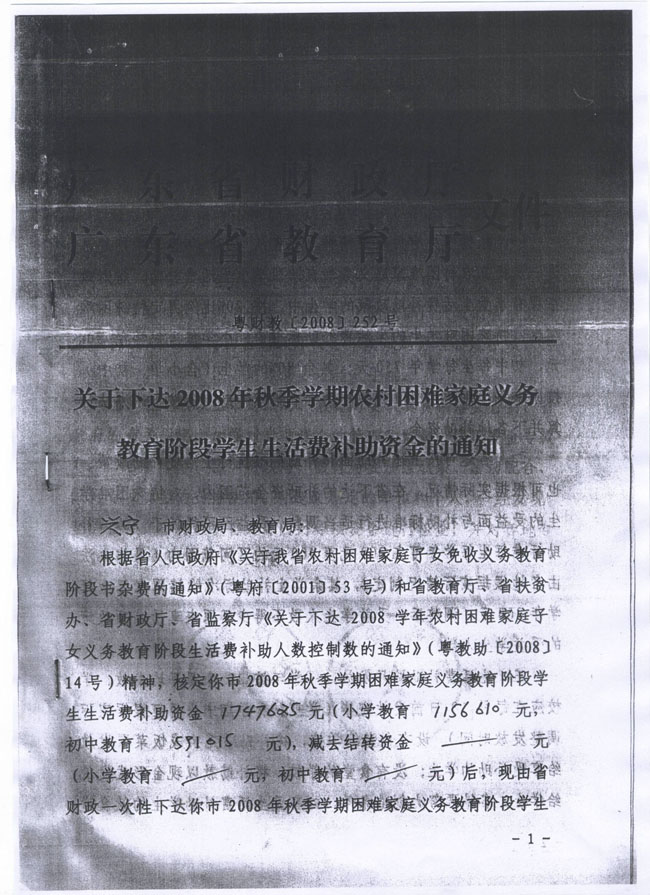 广东省财政厅
广东省教育厅
文件
粤财教〔2008〕252号
关于下达2008年秋季学期农村困难家庭义务
教育阶段学生生活费补助资金的通知
兴宁 市财政局、教育局:
根据省人民政府《关于我省农村困难家庭子女免收义务教育
阶段书杂费的通知》(粤府〔2001〕53 号)和省教育厅、省扶贫
办、省财政厅、省监察厅《关于下达 2008 学年农村困难家庭子
女义务教育阶段生活费补助人数控制数的通知》(粤教助〔2008〕
14号)精神,核定你市2008年秋季学期困难家庭义务教育阶段学
生生活费补助资金 1747625 元(小学教育 1156610 元,
初中教育 591015 元),减去结转资金 —— 元
(小学教育 —— 元,初中教育 —— 元)后,现由省
财政一次性下达你市2008年秋季学期困难家庭义务教育阶段学生
- 1 -